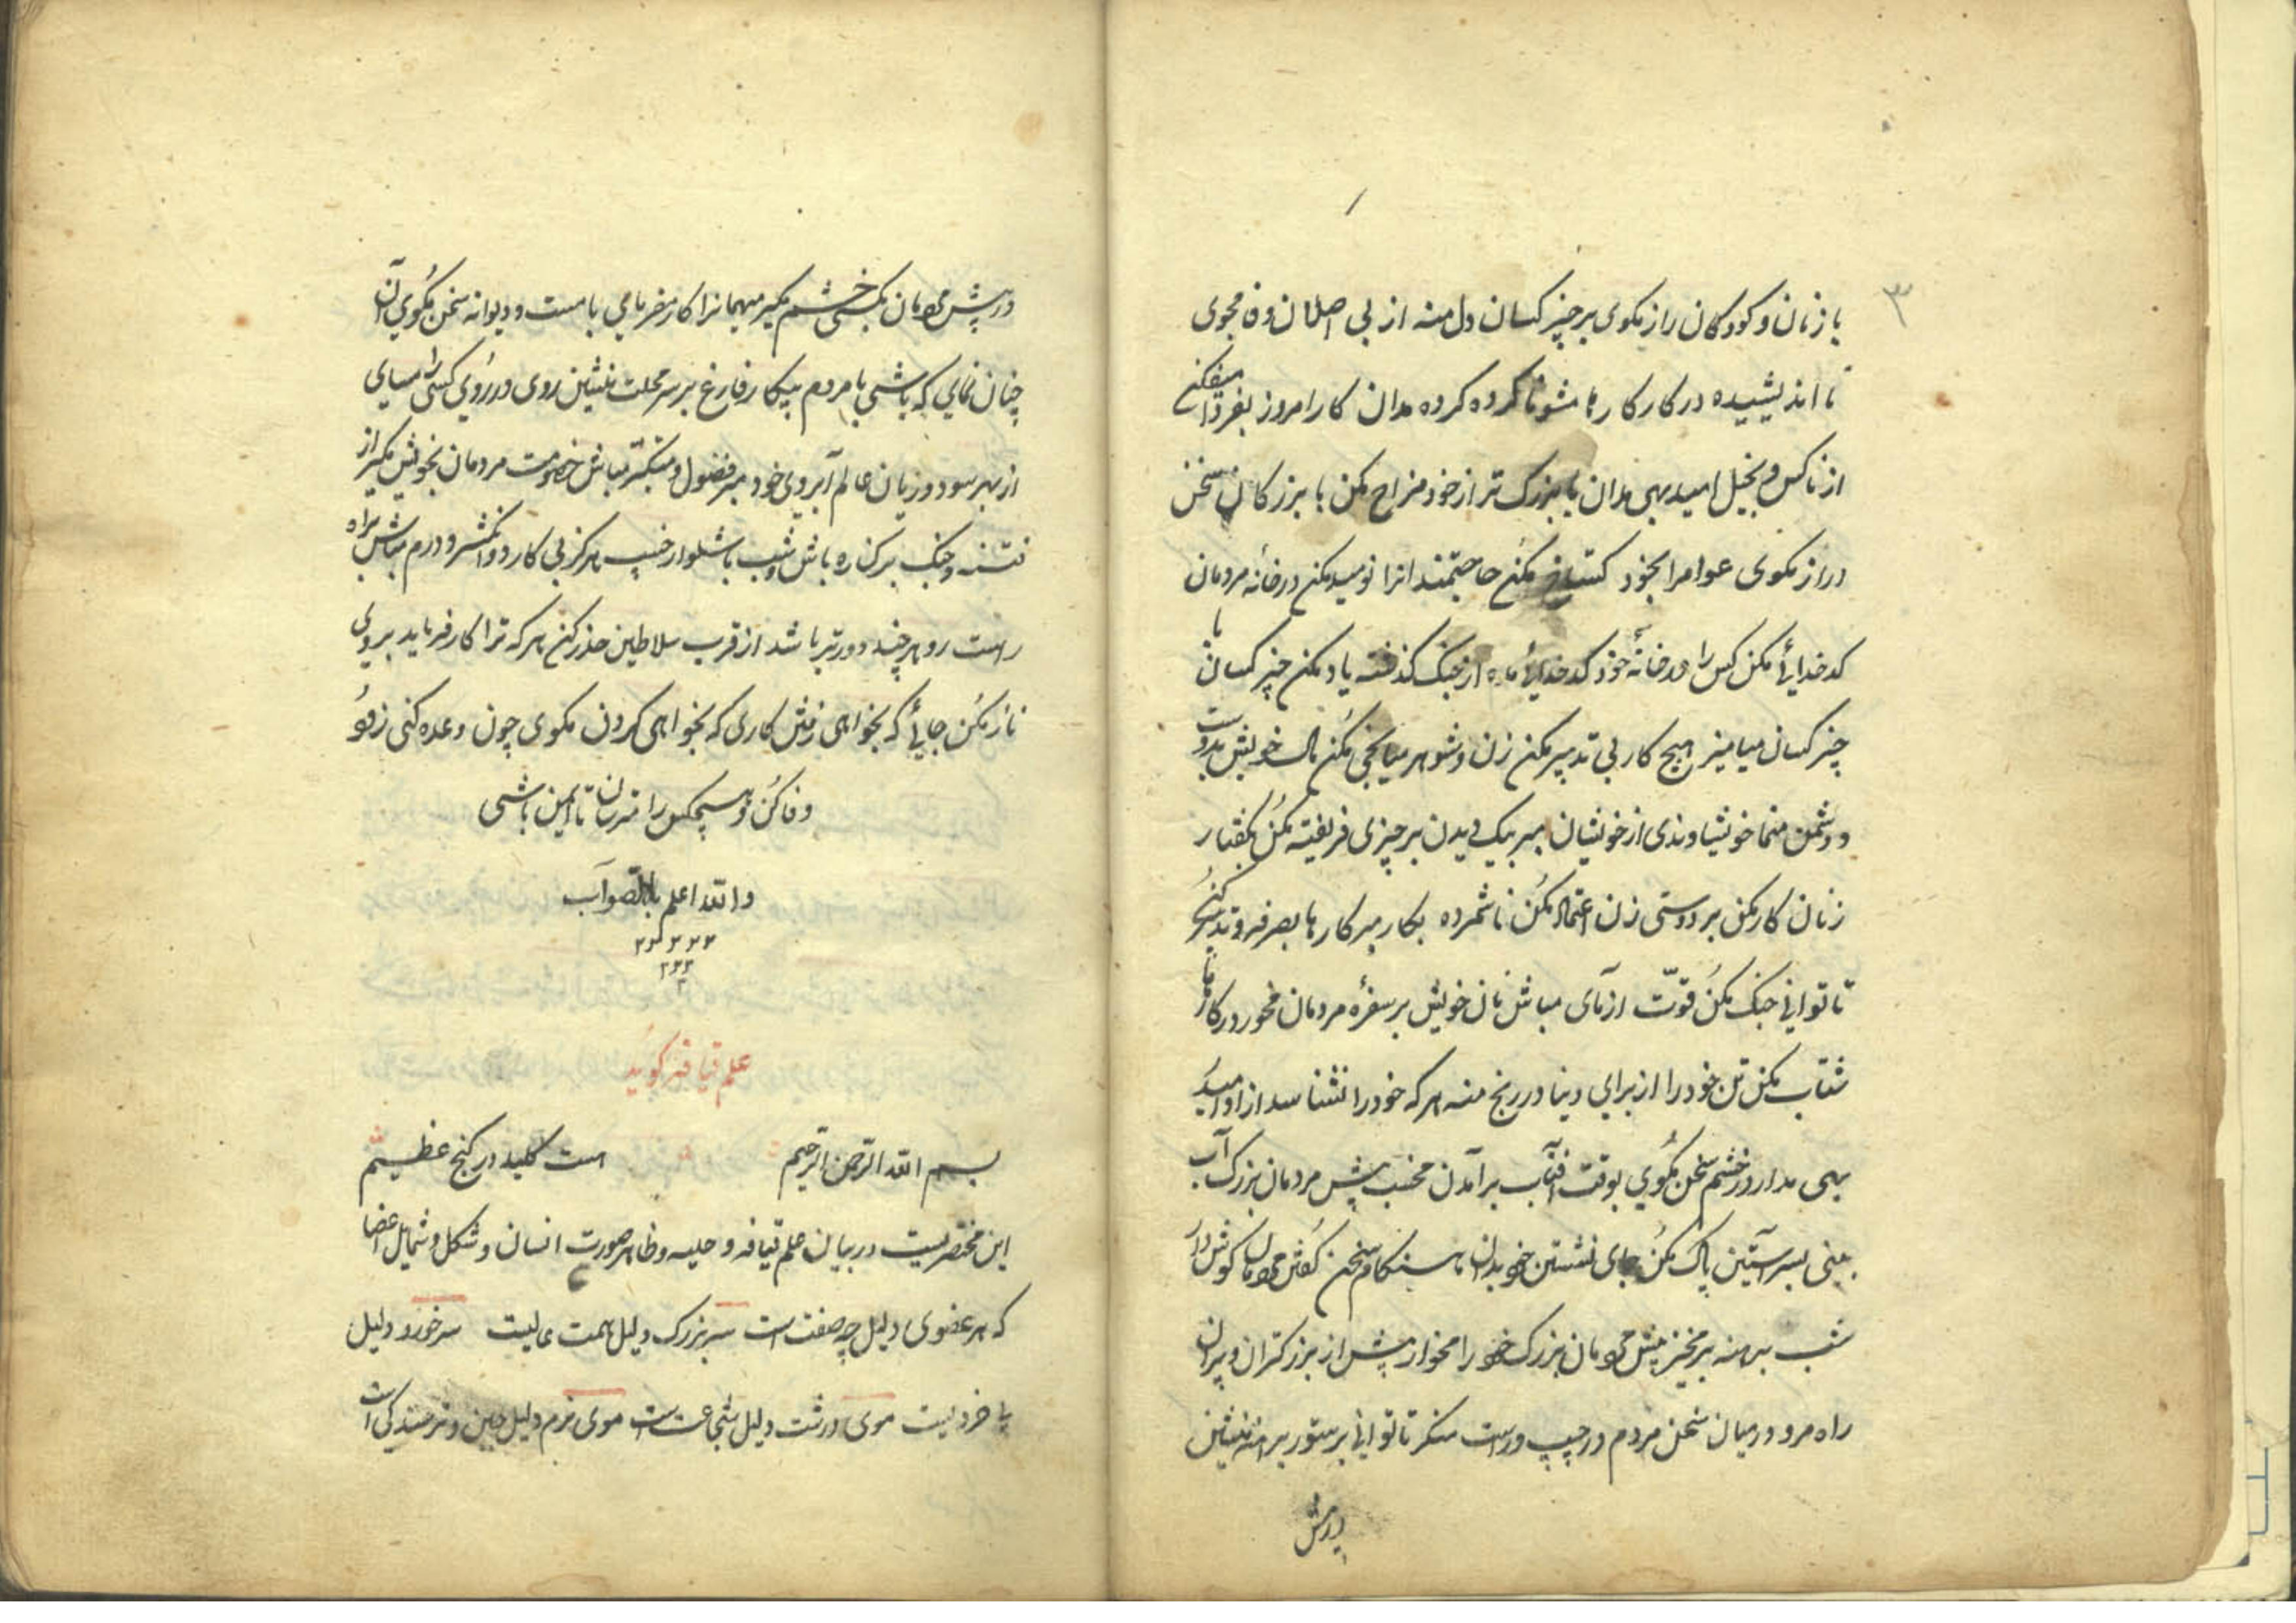 ۳
با زنان و کودکان راز مکوی بر چیز کسان دل منه از بی اصلان وفا مجوی
نا اندیشیده در کار کارها مشو نا کرده کرده مدان کار امروز بفردا میفکن
از ناکس و بخیل امید بهی مدان با بزرک تر از خود مزاح مکن با بزرکان سخن
دراز مکوی عوامرا بخود کستاخ مکن حاجتمندانرا نومید مکن در خانه مردمان
کدخدائی مکن کس را در خانه خود کدخدائی مده از جنک کذشته یاد مکن چیز کسان با
چیز کسان میامیز هیچ کار بی تدبیر مکن زن و شوهر میانجی مکن مال خویش بدوست
و دشمن منما خویشاوندی از خویشان مبر بیک دیدن بر چیزی فریفته مکن بکفتار
زنان کار مکن بر دوستی زن اعتماد مکن ناشمرده بکار مبر کارها بصرفه و تدبیر کن
تا توانی جنک مکن قوت ازمای مباش نان خویش بر سفره مردمان مخور در کارها
شتاب مکن تن خود را از برای دینا در رنج منه هر که خود را نشناسد از او امید
بهی مدار در خشم سخن مکوی بوقت افتاب برآمدن مخسب پیش مردمان بزرک آب
بینی بسر آستین پاک مکن جای نشستن خود بدان هنکام سخن کفتن مردمان کوش دار
شب برهنه برمخیز پیش مردمان بزرک خود را مخوار پیش از بزرکتران و پیران
راه مرو در میان سخن مردم در چپ و راست منکر تا توانی بر ستور برهنه منشین
درپیش
درپیش مردمان بکسی خشم مکیر میهمانرا کار مفرمای با مست و دیوانه سخن مکوی آن
چنان نمای که باشی با مردم بیکار فارغ بر سر محلت منشین روی در روی کسی را مسای
از بهر سود و زیان عالم آبروی خود مبر فضول و متکبر مباش خصومت مردمان بخویش مکیر از
فتنه و جنک بر کناره باش شب با شلوار خسپ هرکز بی کارد و انکشتر و درم مباش براه
راست رو هر چند دورتر باشد از قرب سلاطین حذر کن هر که ترا کار فرماید بر وی
ناز مکن جائی که بخواهی رفتن کاری که بخواهی کردن مکوی چون وعده کنی زود
وفا کن و هیچکس را مترسان تا ایمن باشی
والله اعلم بالصواب
علم قیافه کوید
بسم الله الرحمن الرحیم هست کلید در کنج عظیم
این مختصریست در بیان علم قیافه و حلیه و ظاهر صورت انسان و شکل و شمایل اعضا
که هر عضوی دلیل چه صفت است سر بزرک دلیل همت عالیت سر خورد دلیل
بی خردیست موی درشت دلیل شجاعت است موی نرم دلیل جبن و ترسندکی است